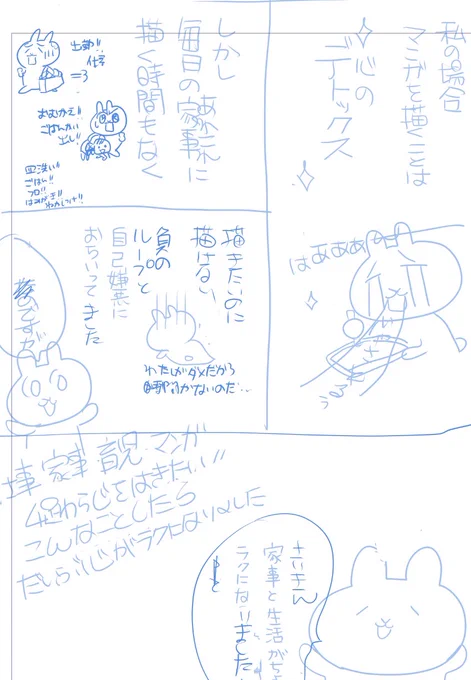 私の場合
マンガを描くことは
心の
デトックス
はあああ
しかし
毎日の家事
に
描く時間もなく
出勤!!
仕事
おむかえ!!
ごはんかい
出し!!
皿洗い!!
ごはん!!
フロ!!
はみがき!!
ねかしつけ!!
描きたいのに
描けない
負の
ループと
自己嫌悪に
おちいってました
わたしがダメだから
時間がないのだ…
ですが
家事 育児 マンガ
4足わらじをはきたい!!
こんなことしたら
だいぶんがラクになりました
さいきん
家事と生活が
ラクになりました